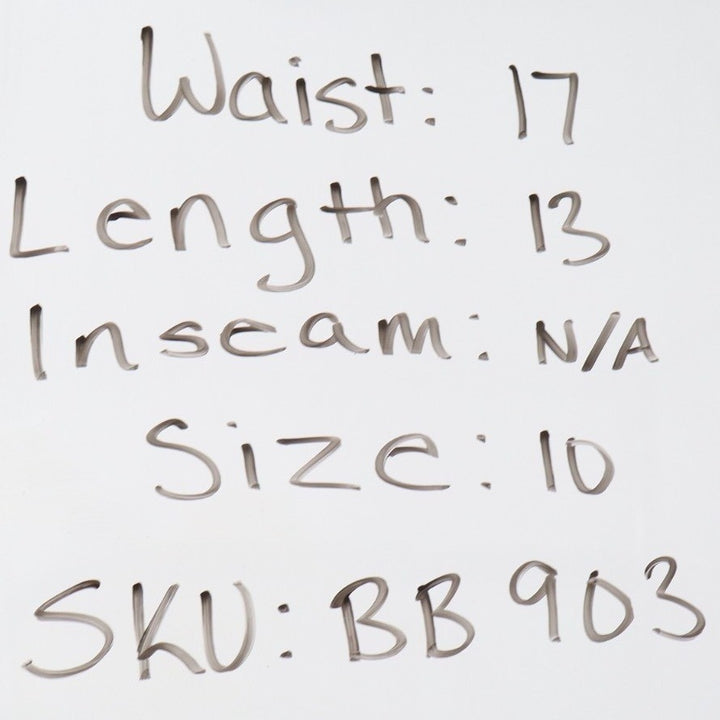 Waist: 17
Length: 13
Inseam: N/A
Size: 10
SKU: BB 903